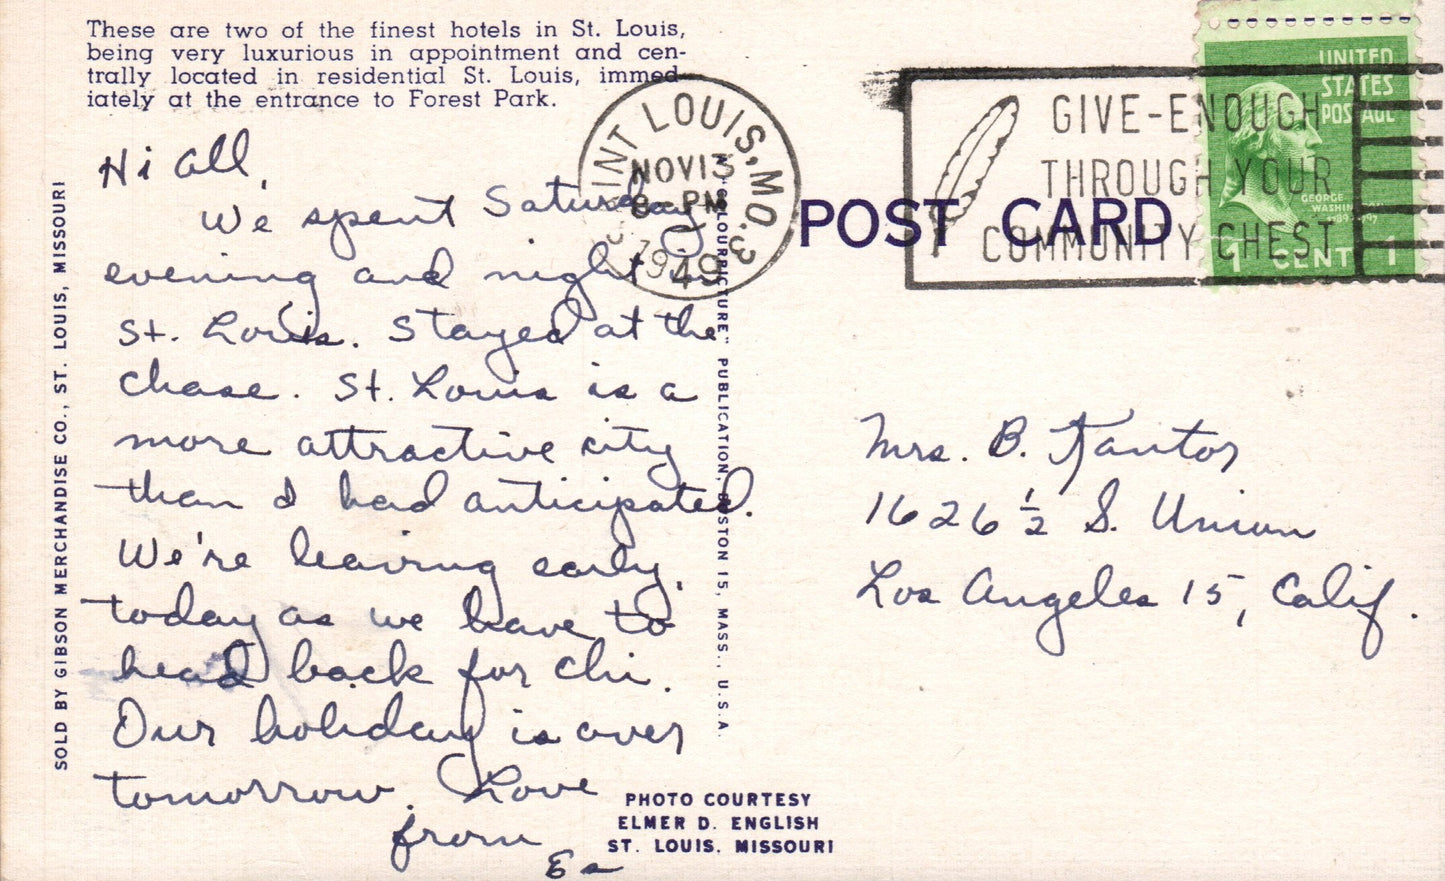 These are two of the finest hotels in St. Louis,
being very luxurious in appointment and cen-
trally located in residential St. Louis, immed-
iately at the entrance to Forest Park.
Hi all,
We spent Saturday
evening and night in
St. Louis. Stayed at the
Chase. St. Louis is a
more attractive city
than I had anticipated.
We're leaving early
today as we have to
head back for Chi.
Our holiday is over
tomorrow. Love
from
SOLD BY GIBSON MERCHANDISE CO., ST. LOUIS, MISSOURI
"COLOURPICTURE" PUBLICATION, BOSTON 15, MASS., U.S.A.
PHOTO COURTESY
ELMER D. ENGLISH
ST. LOUIS, MISSOURI
POST CARD
SAINT LOUIS, MO. 3
NOV 13
8 PM
1949
GIVE-ENOUGH
THROUGH YOUR
COMMUNITY CHEST
UNITED
STATES
POSTAGE
GEORGE
WASHINGTON
1789-1797
1 CENT 1
Mrs. B. Kantor
1626 1/2 S. Union
Los Angeles 15, Calif.